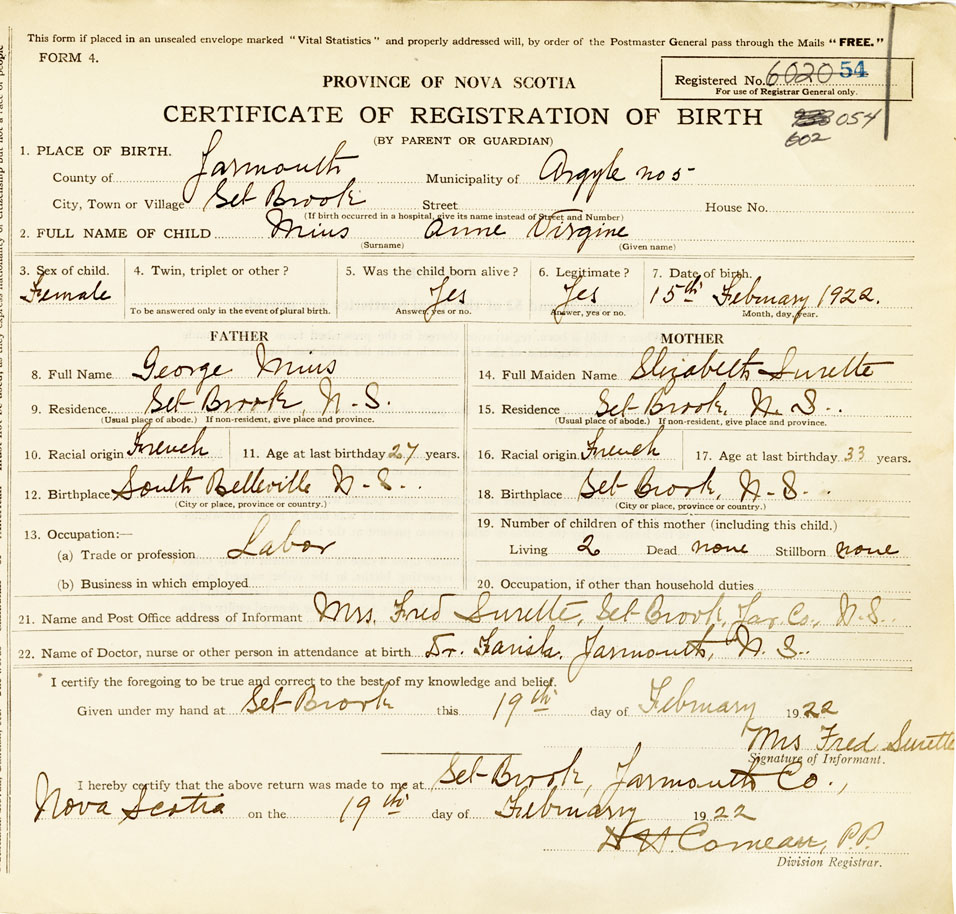 This form if placed in an unsealed envelope marked "Vital Statistics" and properly addressed will, by order of the Postmaster General pass through the Mails "FREE."
FORM 4.
Registered No. 6020 54
For use of Registrar General only.
PROVINCE OF NOVA SCOTIA
CERTIFICATE OF REGISTRATION OF BIRTH 054
602
(BY PARENT OR GUARDIAN)
1. PLACE OF BIRTH.
County of Yarmouth Municipality of Argyle no 5
City, Town or Village Sel-Brook Street House No.
(If birth occurred in a hospital, give its name instead of Street and Number)
2. FULL NAME OF CHILD Mius Anne Virgine
(Surname) (Given name)
3. Sex of child. 4. Twin, triplet or other? 5. Was the child born alive? 6. Legitimate? 7. Date of birth.
Female Yes Yes 15th February 1922.
To be answered only in the event of plural birth. Answer, yes or no. Answer, yes or no. Month, day, year.
FATHER MOTHER
8. Full Name George Mius 14. Full Maiden Name Elizabeth Surette
9. Residence Sel-Brook, N-S. 15. Residence Sel-Brook, N. S..
(Usual place of abode.) If non-resident, give place and province. (Usual place of abode.) If non-resident, give place and province.
10. Racial origin French 11. Age at last birthday 27 years. 16. Racial origin French 17. Age at last birthday 33 years.
12. Birthplace South Belleville N-S.. 18. Birthplace Sel-Brook, N-S..
(City or place, province or country.) (City or place, province or country.)
13. Occupation:— 19. Number of children of this mother (including this child.)
(a) Trade or profession Labor Living 2 Dead none Stillborn none
(b) Business in which employed 20. Occupation, if other than household duties
21. Name and Post Office address of Informant Mrs. Fred Surette, Sel-Brook, Yar. Co., N-S..
22. Name of Doctor, nurse or other person in attendance at birth Dr. Farish, Yarmouth, N. S..
I certify the foregoing to be true and correct to the best of my knowledge and belief.
Given under my hand at Sel-Brook this 19th day of February 1922
Mrs Fred Surette
Signature of Informant.
I hereby certify that the above return was made to me at Sel-Brook, Yarmouth Co.,
Nova Scotia on the 19th day of February 1922
Comeau, P.P.
Division Registrar.